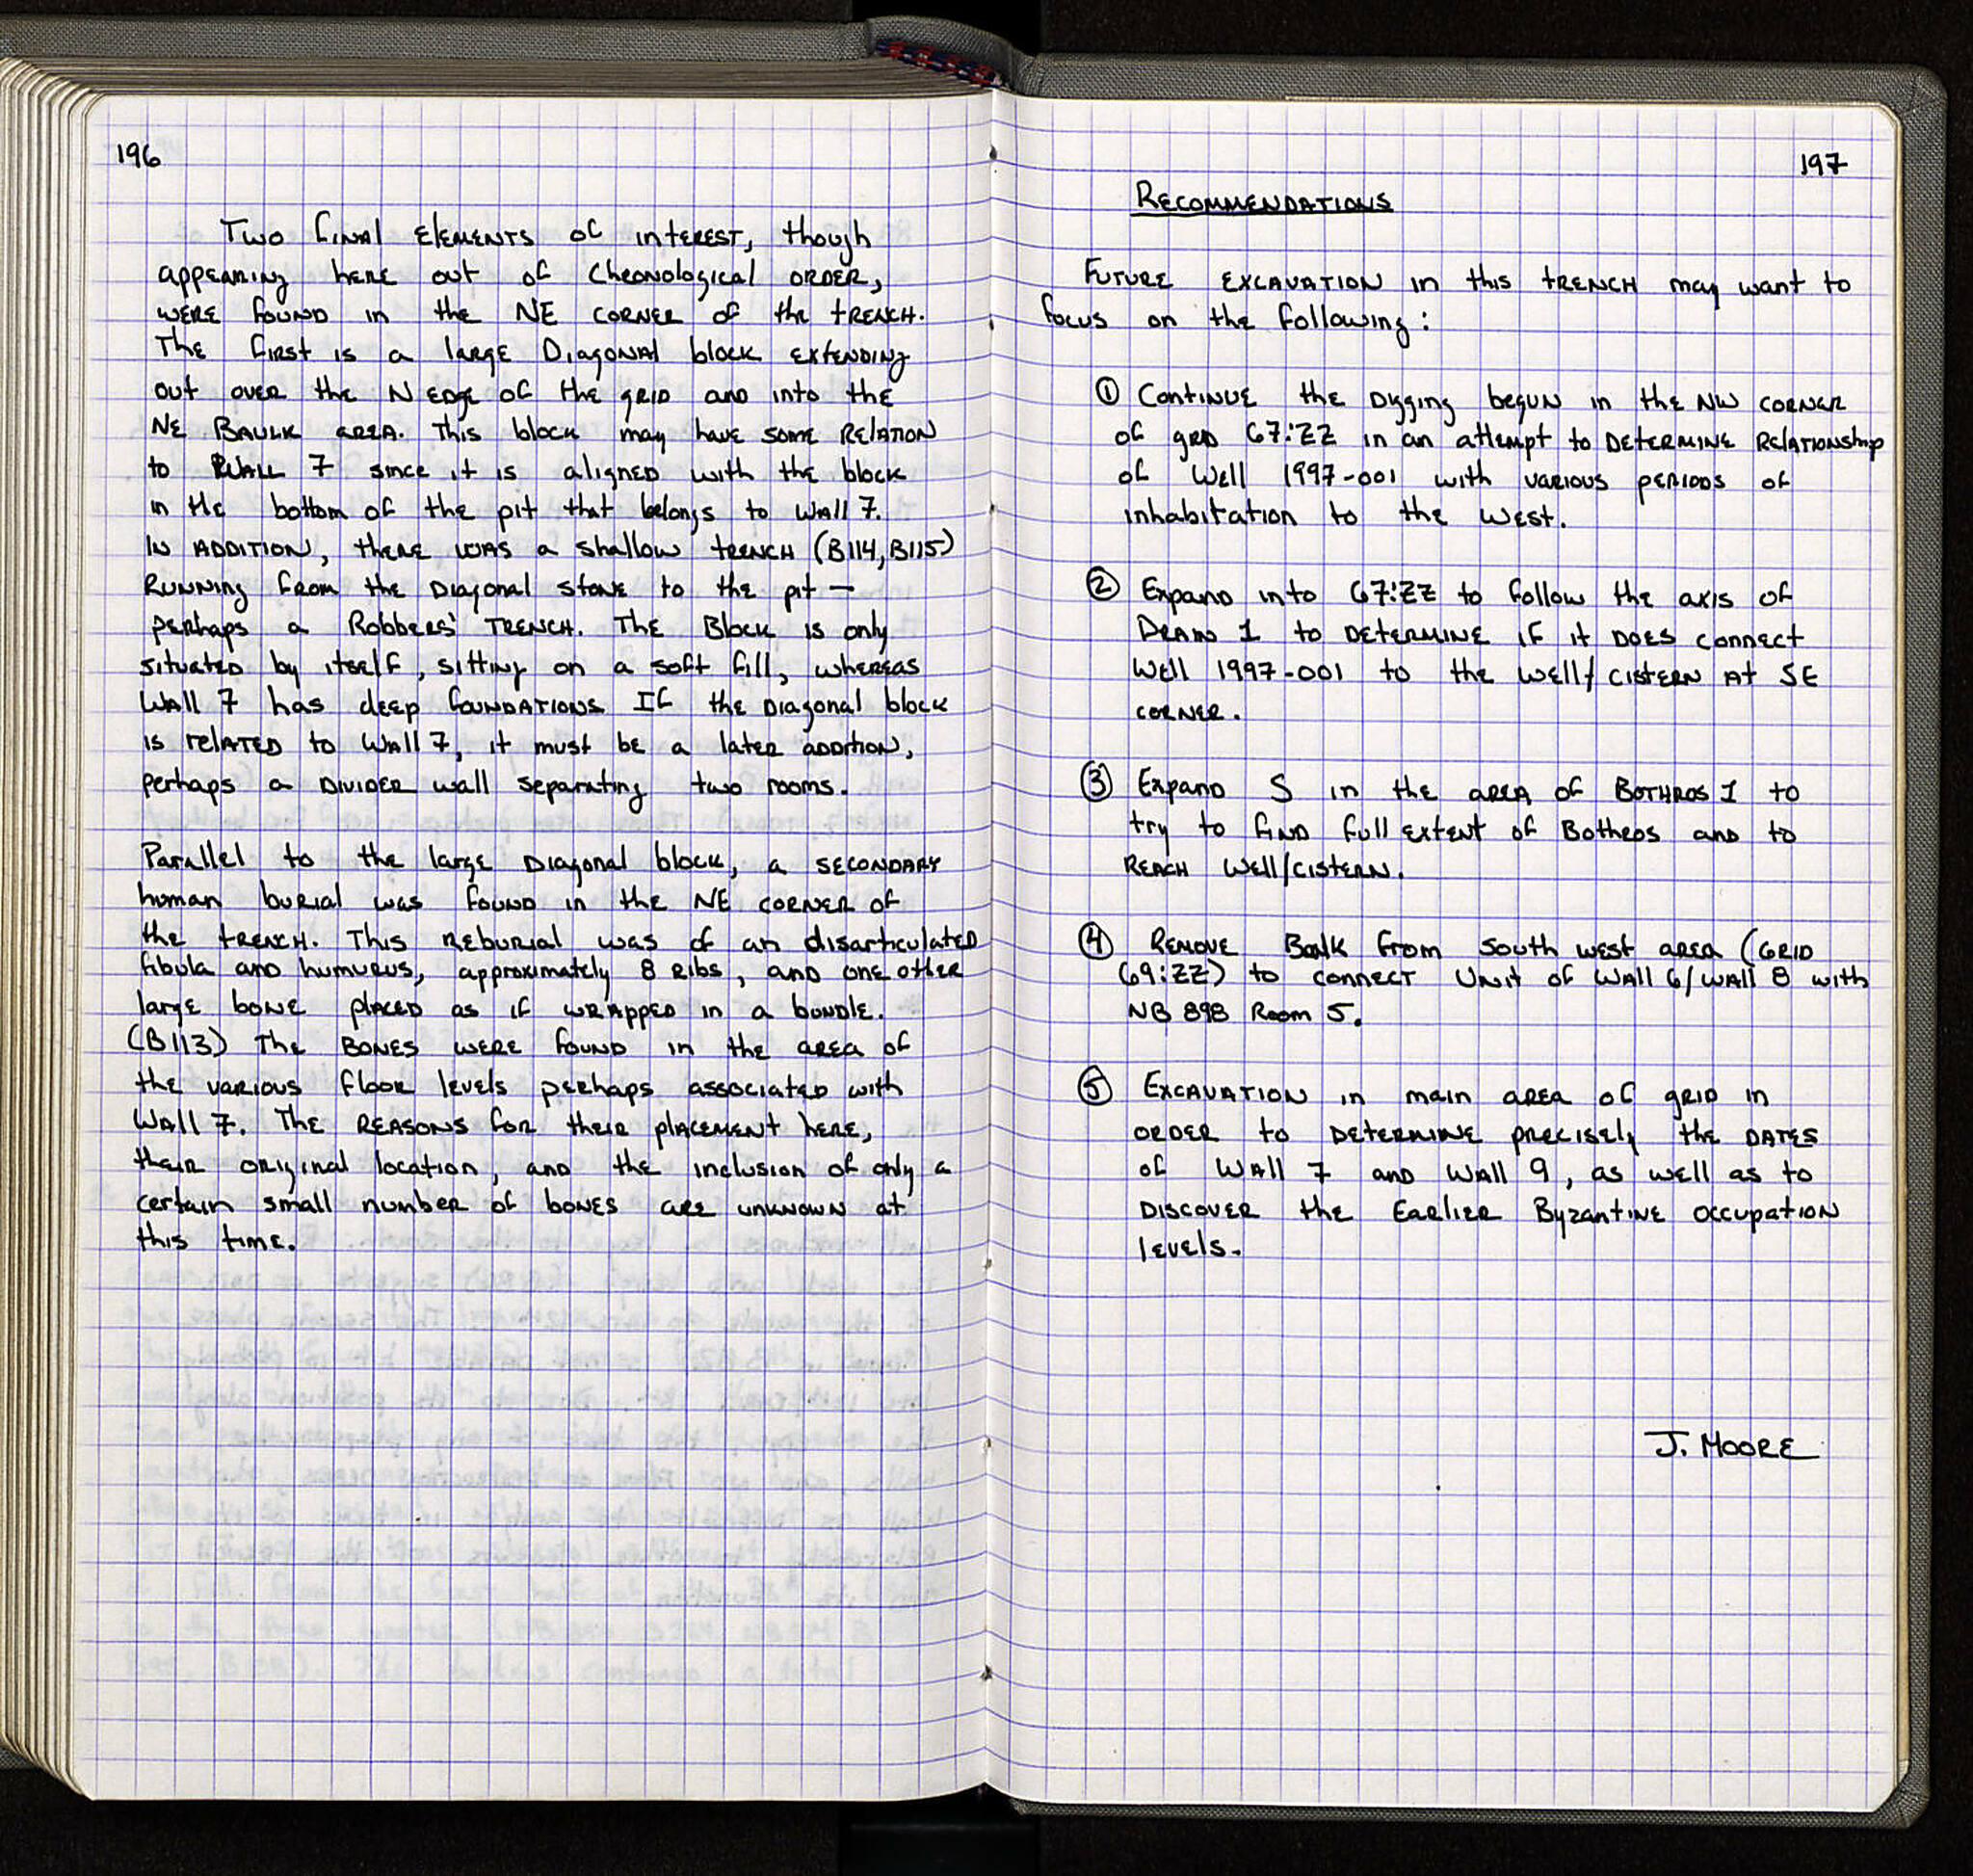 196
Two final elements of interest, though
appearing here out of chronological order,
were found in the NE corner of the trench.
The first is a large Diagonal block extending
out over the N edge of the grid and into the
NE Baulk area. This block may have some relation
to Wall 7 since it is aligned with the block
in the bottom of the pit that belongs to Wall 7.
In addition, there was a shallow trench (B114, B115)
running from the Diagonal stone to the pit —
perhaps a Robbers' Trench. The Block is only
situated by itself, sitting on a soft fill, whereas
Wall 7 has deep foundations. If the Diagonal block
is related to Wall 7, it must be a later addition,
perhaps a Divider wall separating two rooms.
Parallel to the large Diagonal block, a secondary
human burial was found in the NE corner of
the trench. This reburial was of an disarticulated
fibula and humurus, approximately 8 ribs, and one other
large bone placed as if wrapped in a bundle.
(B113) The Bones were found in the area of
the various floor levels perhaps associated with
Wall 7. The reasons for their placement here,
their original location, and the inclusion of only a
certain small number of bones are unknown at
this time.
197
RECOMMENDATIONS
Future excavation in this trench may want to
focus on the following:
① Continue the Digging begun in the NW corner
of grid 67:ZZ in an attempt to determine relationship
of Well 1997-001 with various periods of
inhabitation to the west.
② Expand into 67:ZZ to follow the axis of
Drain 1 to determine if it does connect
Well 1997-001 to the well/cistern at SE
corner.
③ Expand S in the area of Bothros 1 to
try to find full extent of Bothros and to
reach Well/cistern.
④ Remove Balk from South west area (Grid
69:ZZ) to connect Unit of Wall 6/Wall 8 with
NB 898 Room 5.
⑤ Excavation in main area of grid in
order to determine precisely the dates
of Wall 7 and Wall 9, as well as to
discover the Earlier Byzantine occupation
levels.
J. MOORE